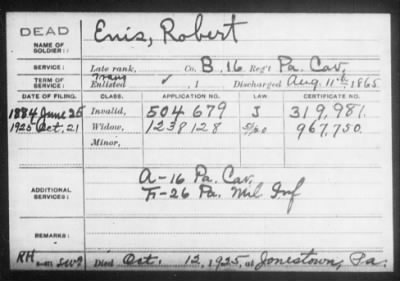 DEAD
NAME OF SOLDIER: Enis, Robert
SERVICE: Late rank, Co. B, 16 Reg't Pa. Cav.
TERM OF SERVICE: Enlisted , 1 Discharged Aug. 11th, 1865
DATE OF FILING. CLASS. APPLICATION NO. LAW CERTIFICATE NO.
1884 June 25 Invalid, 504679 J 319,981.
1925 Oct. 21 Widow, 1238128 967,750.
Minor,
ADDITIONAL SERVICES: A-16 Pa. Cav.
F-26 Pa. Mil Inf
REMARKS:
RH Died Oct. 12, 1925, at Jonestown, Pa.